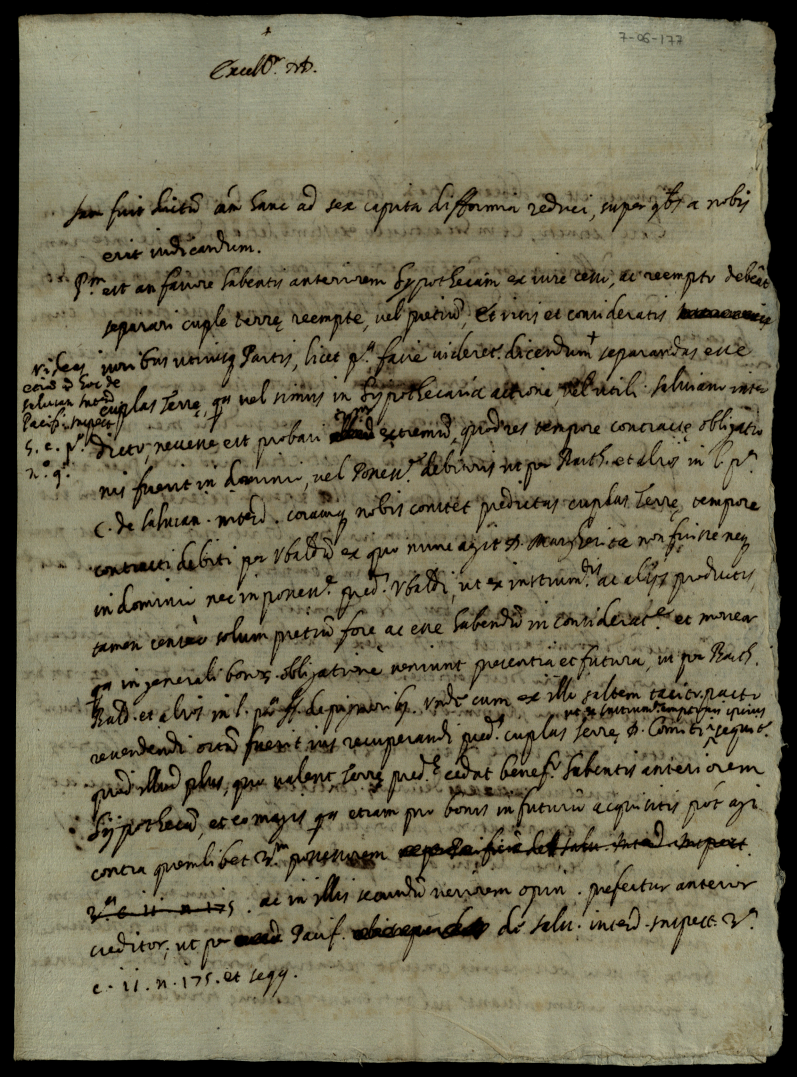 7-06-177
+
Excell.
Iam fuit dictū cām hanc ad sex capita difformia reduci, super qbs a nobis
erit iudicandum.
Pm est an favore habentis anteriorem hypothecam ex iure cesso, ac reempto debeāt
separari cuple terrę reempte, vel pretiū, Et visis et consideratis
iuribus utriusq Partis, licet pa facie videret dicendum separandas esse
cuplas Terrę, qa vel simus in hypothecaria actione, vel utili salviano inter
dicto, necesse est probari extremū, quod res tempore contractę obligatio
nis fuerit in dominio, vel Possess. debitoris ut per Barth. et alios in l. pa
C. de salvian. interd. coramq nobis constet predictas cuplas Terrę, tempore
contracti debiti per Ubaldū ex quo nunc agit D. Margherita non fuisse neq
in dominio nec in possess. pred. Ubaldi, ut ex instrum.is ac alijs productis,
tamen censeo solum pretiū fore ac esse habendū in considerat.e et moveor
qa in generali bonor. obligatione veniunt presentia et futura, ut per Barth.
Bald. et alios in l. pa ff. de pignorib. Unde cum ex illo saltem tacito pacto
revendendi ortū fuerit ius recuperandi pred. cuplas Terrę D. Comiti sequit.
quod illud plus, quo valent Terrę pred.e cedat benef.o habentis anteriorem
hypothecā, et eo magis qa etiam pro bonis in futurū acquisitis pōt agi
contra quemlibet possessorem
ac in illis secundū veriorem opin. prefertur anterior
creditor, ut per Pacif. de salv. interd. inspect. 2.a
c. 11. n. 175. et seqq.
Videas
salvian interd.
Pacif. inspect.
5. c. p.o
n.o 9.o